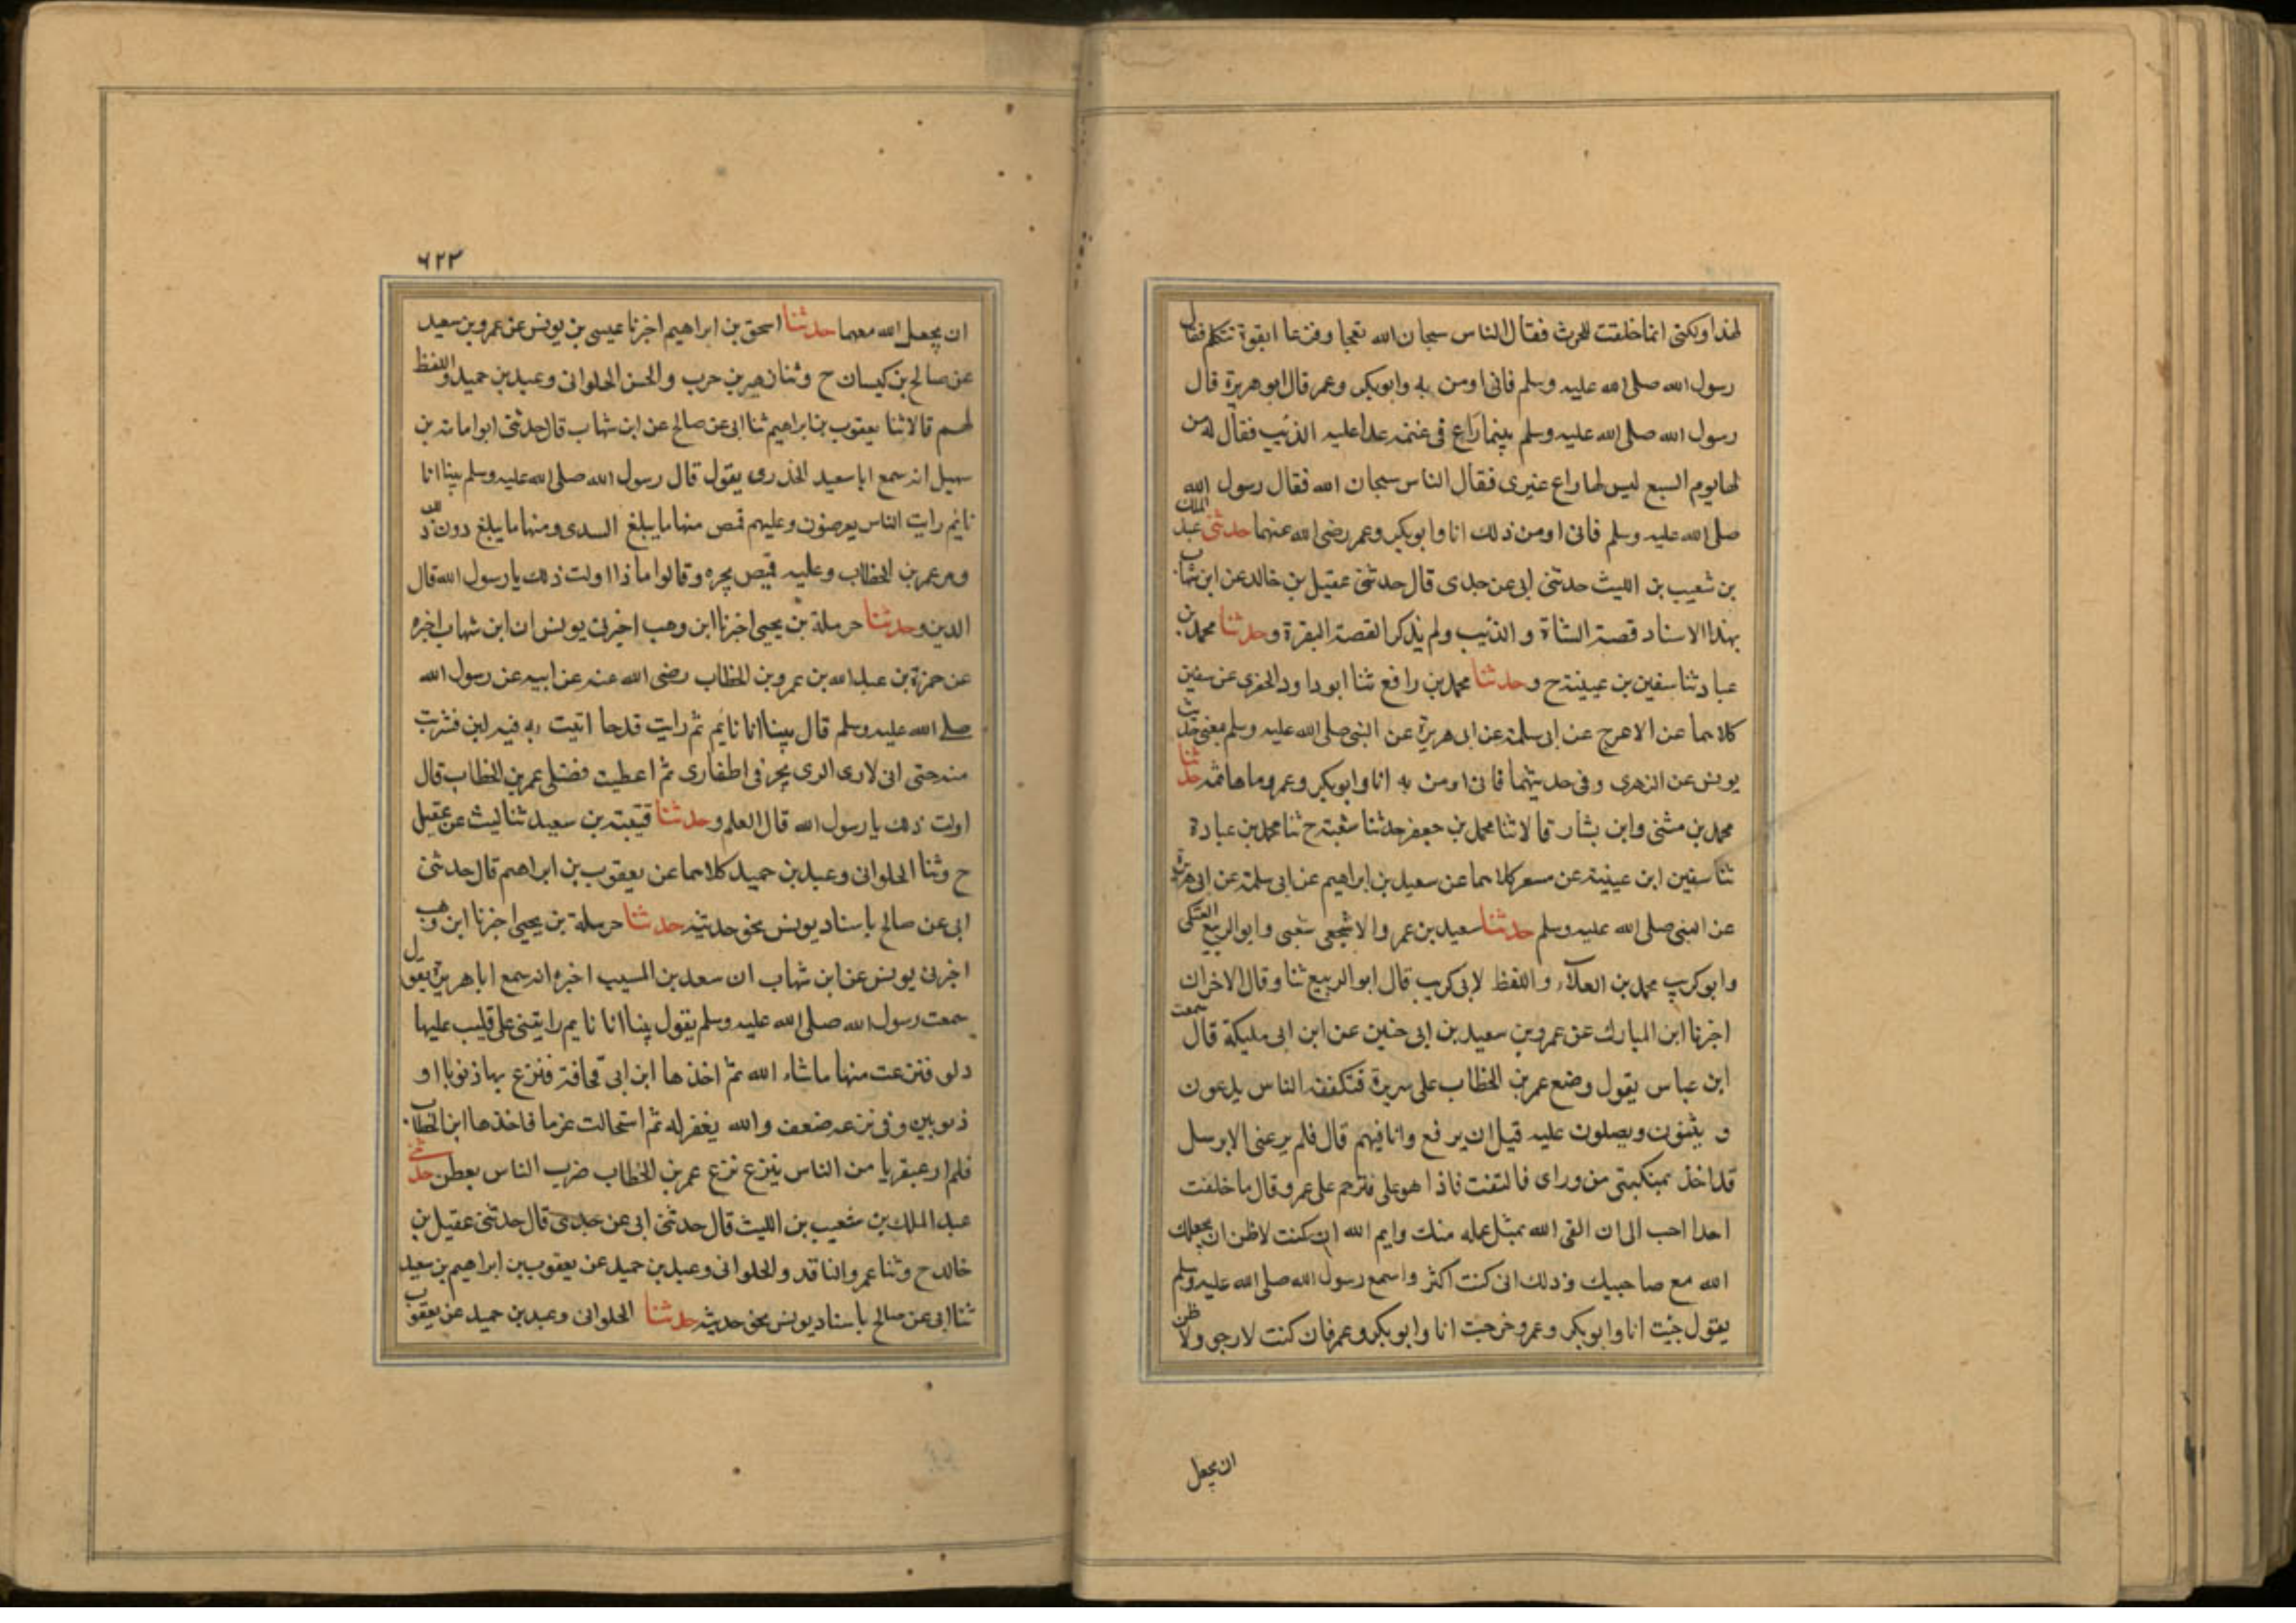 لهذا ولكنى انما خلقت للحرث فقال الناس سبحان الله تعجبا وفزعا ابقرة تتكلم فقال
رسول الله صلى الله عليه وسلم فانى اومن به وابوبكر وعمر قال ابوهريرة قال
رسول الله صلى الله عليه وسلم بينما راع فى غنمه عدا عليه الذئب فقال له من
لها يوم السبع ليس لها راع غيرى فقال الناس سبحان الله فقال رسول الله
صلى الله عليه وسلم فانى اومن ذلك انا وابوبكر وعمر رضى الله عنهما حدثنى عبد الملك
بن شعيب بن الليث حدثنى ابى عن جدى قال حدثنى عقيل بن خالد عن ابن شهاب
بهذا الاسناد قصة الشاة و الذئب ولم يذكر القصة البقرة وحدثنا محمد بن
عباد ثنا سفين بن عيينة ح وحدثنا محمد بن رافع ثنا ابو داود الحفرى عن سفين
كلاهما عن الاعرج عن ابى سلمة عن ابى هريرة عن النبى صلى الله عليه وسلم بمعنى حديث
يونس عن الزهرى وفى حديثهما فانى اومن به انا وابوبكر وعمر وما هما ثمه حدثنا
محمد بن مثنى وابن بشار قالا ثنا محمد بن جعفر حدثنا شعبة ح ثنا محمد بن عبادة
ثنا سفين ابن عيينة عن مسعر كلاهما عن سعيد بن ابراهيم عن ابى سلمة عن ابى هريرة
عن النبى صلى الله عليه وسلم حدثنا سعيد بن عمرو الاشجعى شعبى وابو الربيع العتكى
وابو كريب محمد بن العلاء واللفظ لابى كريب قال ابو الربيع ثنا وقال الاخران
اخبرنا ابن المبارك عن عمرو بن سعيد بن ابى حنين عن ابن ابى مليكة قال سمعت
ابن عباس يقول وضع عمر بن الخطاب على سريرة فتكفنه الناس يدعون
و يثنون ويصلون عليه قيل ان يرفع وانا فيهم قال فلم يرعنى الا برسل
قد اخذ بمنكبتى من وراى فالتفت فاذا هو على فترحم على عمر وقال ما خلفت
احدا احب الى ان القى الله بمثل عمله منك وايم الله ان كنت لاظن ان يجعلك
الله مع صاحبيك وذلك انى كنت اكثر واسمع رسول الله صلى الله عليه وسلم
يقول جئت انا وابوبكر وعمر وخرجت انا وابوبكر وعمر فان كنت لارجى ولا ظن
ان يجعل
٦٢٣
ان يجعل الله معهما حدثنا اسحق بن ابراهيم اخبرنا عيسى بن يونس عن عمرو بن سعيد
عن صالح بن كيسان ح وثنا زهير بن حرب والحسن الحلوانى وعبد بن حميد واللفظ
لهم قالا ثنا يعقوب بن ابراهيم ثنا ابى عن صالح عن ابن شهاب قال حدثنى ابو امامة بن
سهيل انه سمع ابا سعيد الخدرى يقول قال رسول الله صلى الله عليه وسلم بينا انا
نايم رايت الناس يعرضون وعليهم قمص منها ما يبلغ السدى ومنها ما يبلغ دون ذلك
ومر عمر بن الخطاب وعليه قميص يجره وقالوا ماذا اولت ذلك يا رسول الله قال
الدين وحدثنا حرملة بن يحيى اخبرنا ابن وهب اخبرنى يونس ان ابن شهاب اخبره
عن حمزة بن عبد الله بن عمرو بن الخطاب رضى الله عنه عن ابيه عن رسول الله
صلى الله عليه وسلم قال بينا انا نايم ثم رايت قدحا اتيت به فيه لبن فشربت
منه حتى انى لارى الرى يجر فى اظفارى ثم اعطيت فضلى عمر بن الخطاب قال
اولت ذلك يا رسول الله قال العلم وحدثنا قتيبة بن سعيد ثنا ليث عن عقيل
ح وثنا الحلوانى وعبد بن حميد كلاهما عن يعقوب بن ابراهيم قال حدثنى
ابى عن صالح باسناد يونس نحو حديثه حدثنا حرملة بن يحيى اخبرنا ابن وهب
اخبرنى يونس عن ابن شهاب ان سعد بن المسيب اخبره انه سمع ابا هريرة يقول
سمعت رسول الله صلى الله عليه وسلم يقول بينا انا نايم رايتنى على قليب عليها
دلو فنزعت منها ما شاء الله ثم اخذها ابن ابى قحافة فنزع بها ذنوبا او
ذنوبين وفى نزعه ضعف والله يغفر له ثم استحالت غربا فاخذها ابن الخطاب
فلم ار عبقريا من الناس ينزع نزع عمر بن الخطاب ضرب الناس بعطن حدثنى
عبد الملك بن شعيب بن الليث قال حدثنى ابى عن جدى قال حدثنى عقيل بن
خالد ح وثنا عمرو الناقد والحلوانى وعبد بن حميد عن يعقوب بن ابراهيم بن سعيد
ثنا ابى عن صالح باسناد يونس نحو حديثه حدثنا الحلوانى وعبد بن حميد عن يعقوب